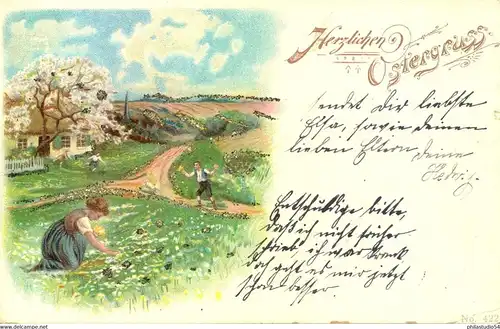 Herzlichen
Ostergruss.
sendet Dir liebste
Elsa, sowie deinen
lieben Eltern deine
Hedwig.
Entschuldige, bitte,
daß ich nicht früher
schrieb, ich war krank
doch geht es mir jetzt
schon besser.
No. 422
www.philastudio.com
philastudio54